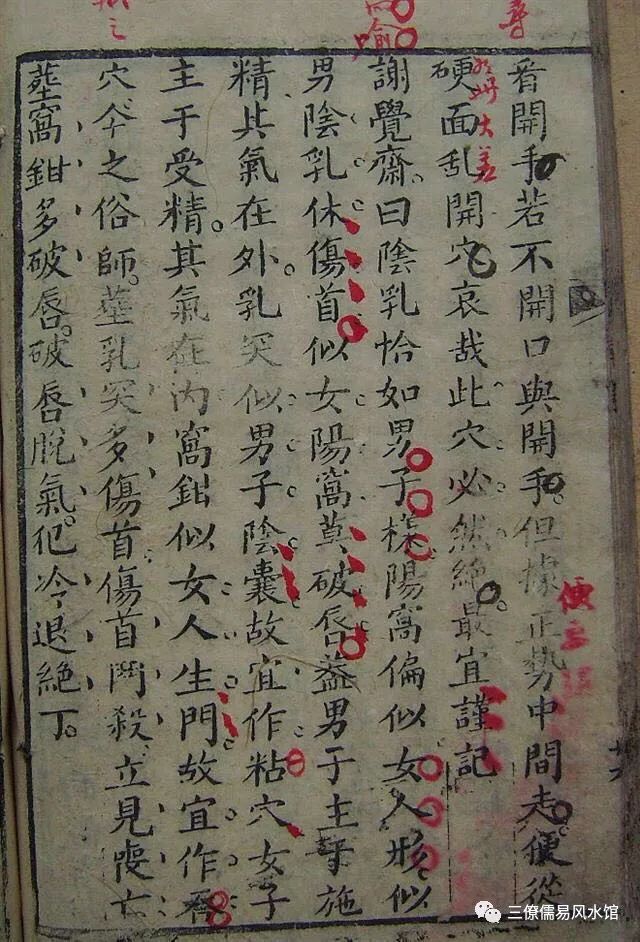 看開手若不開口與開手但據正勢中間走便從
硬面乱開穴哀哉此穴必然絕最宜謹記
謝覺齋曰陰乳恰如男子樣陽窩偏似女人形似
男陰乳休傷首似女陽窩莫破唇蓋男子主于施
精其氣在外乳突似男子陰囊故宜作粘穴女子
主于受精其氣在内窩鉗似女人生門故宜作
穴今之俗師塟乳突多傷首傷首鬥殺立見喪亡
塟窩鉗多破唇破唇脫氣犯冷退絕丁
三僚儒易风水馆